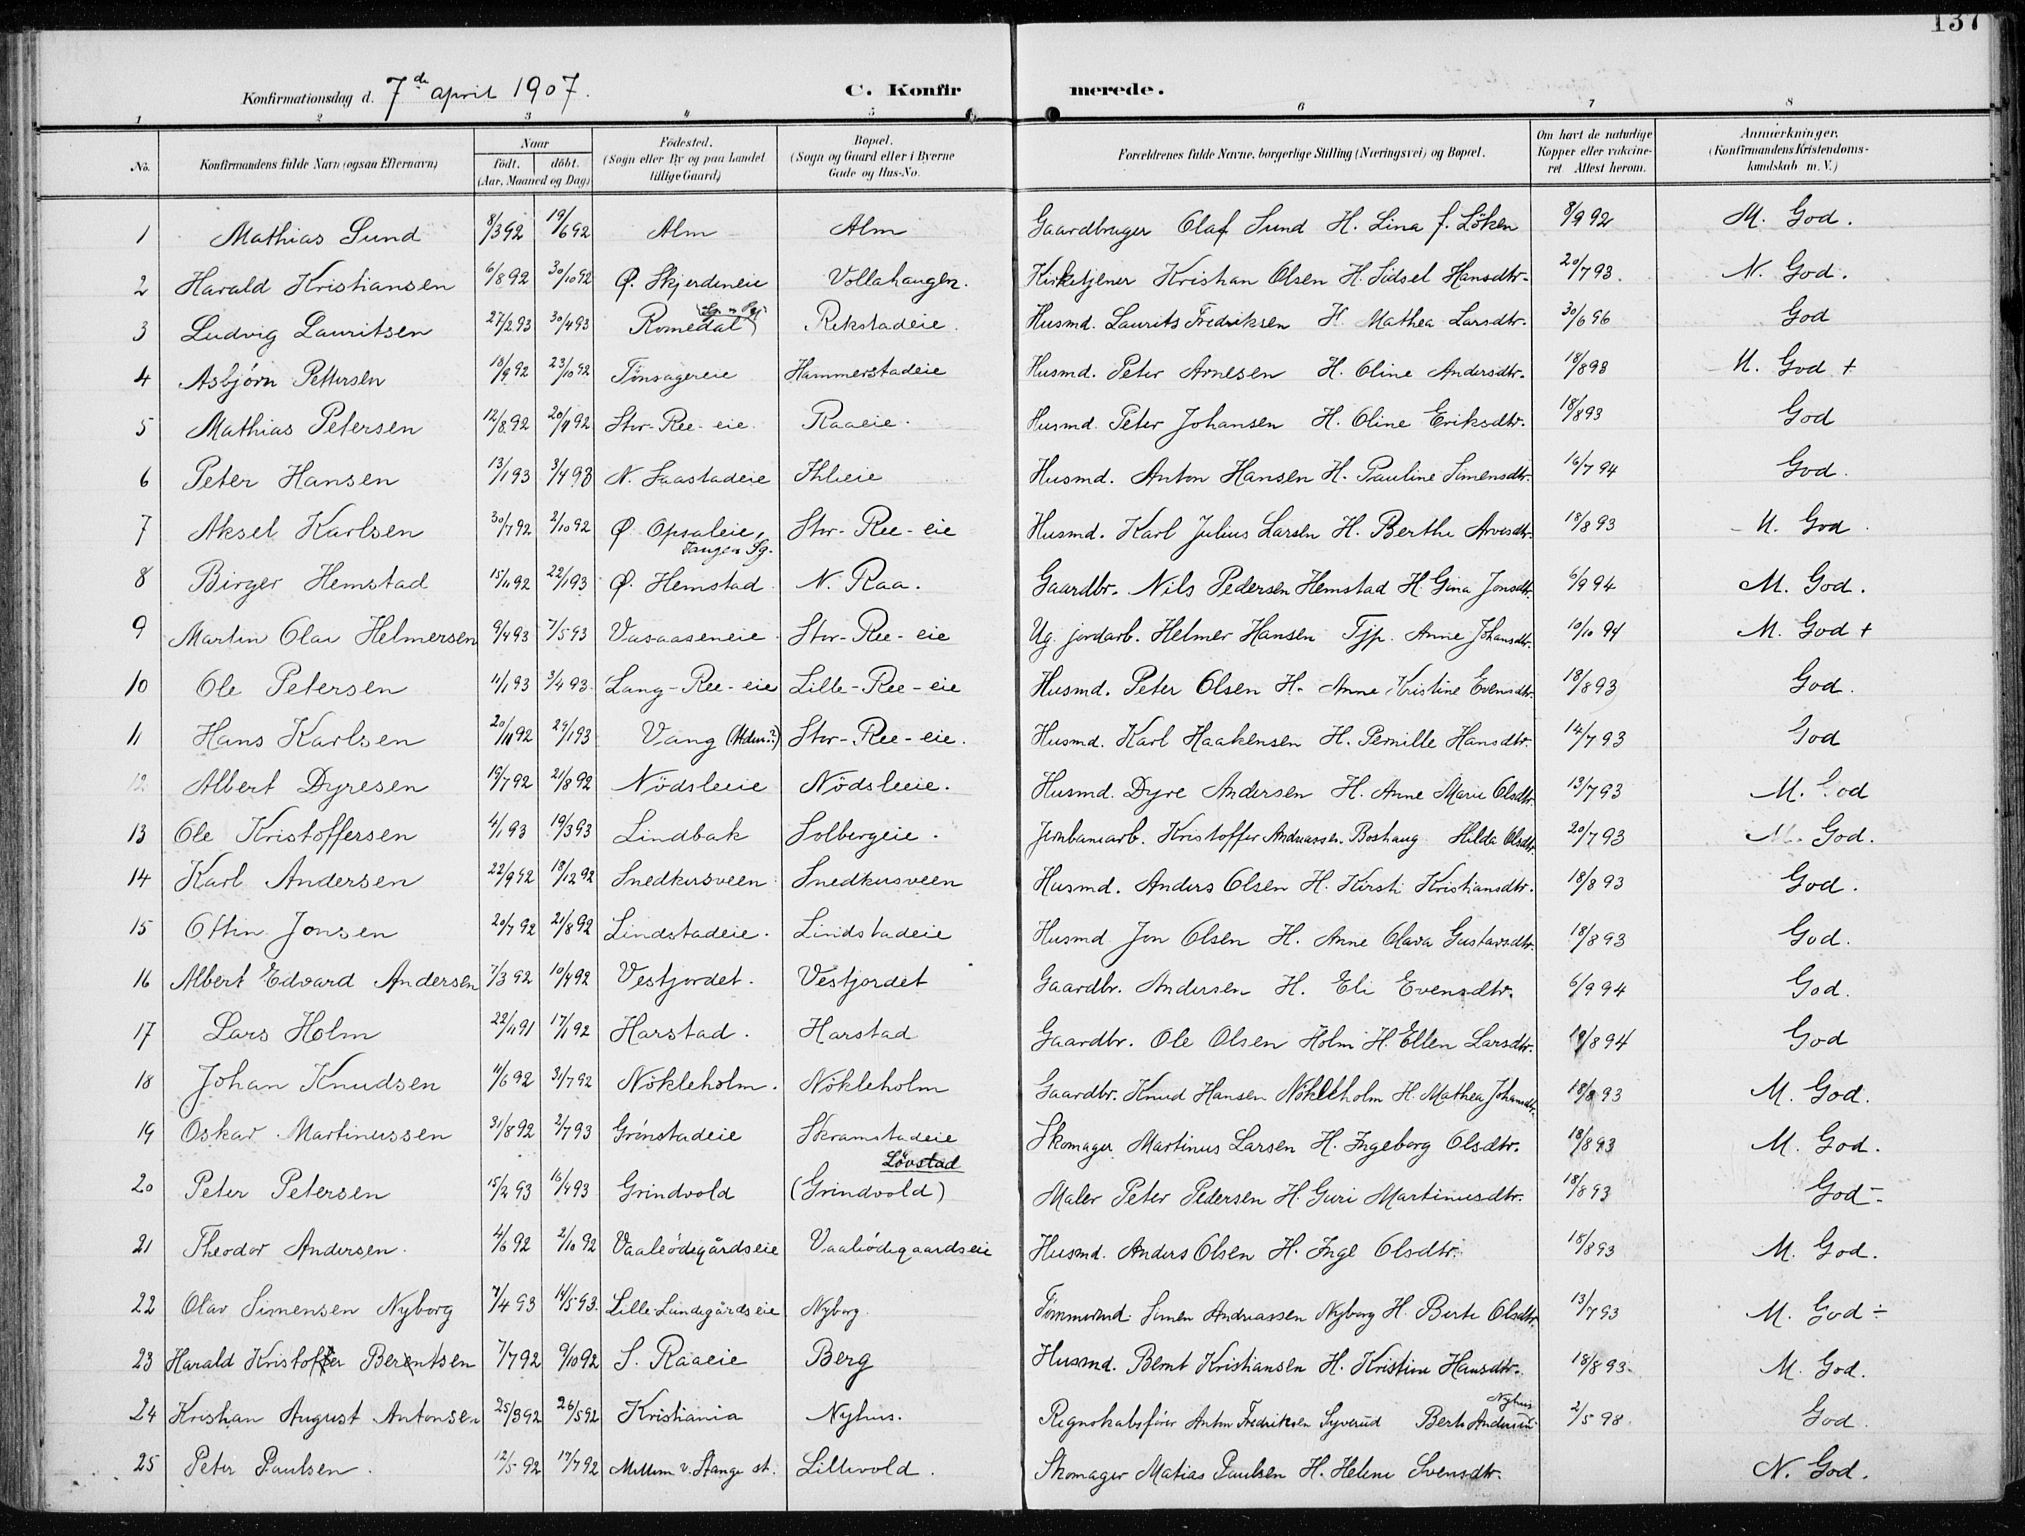 137
Konfirmationsdag d. 7de april 1907. C. Konfirmerede.
1 2 3 4 5 6 7 8
No. Konfirmandens fulde Navn (ogsaa Efternavn) Naar født. døbt. (Aar, Maaned og Dag) Fødested. (Sogn eller By og paa Landet tillige Gaard) Bopæl. (Sogn og Gaard eller i Byerne Gade og Hus-No. Forældrenes fulde Navne, borgerlige Stilling (Næringsvei) og Bopæl. Om havt de naturlige Kopper eller vakcineret Attest herom. Anmærkninger. (Konfirmandens Kristendomskundskab m. V.)
1 Mathias Sund 8/3 92 19/6 92 Alm Alm Gaardbruger Olaf Sund H. Lina f. Löken 8/9 92 M. God.
2 Harald Kristiansen 6/8 92 30/10 92 Ø. Skjerdeneie Vollahaugen. Kirketjener Kristian Olsen H. Sidsel Hansdtr. 20/7 93. N. God.
3 Ludvig Lauritsen 27/2 93 30/4 93 Romedal Rekstadeie. Husmd. Laurits Fredriksen H. Mathea Larsdtr. 30/6 96 God
4 Asbjørn Pettersen 18/9 92 23/10 92 Tönsagereie Hammerstadeie Husmd. Peter Arnesen H. Oline Andersdtr. 18/8 93 M. God +
5 Mathias Petersen 12/8 92 20/11 92 Stor-Ree-eie. Raaeie. Husmd. Peter Johansen H. Oline Eriksdtr. 18/8 93 God
6 Peter Hansen 13/1 93 3/4 93 N. Saastadeie Ihleie Husmd. Anton Hansen H. Pauline Simensdtr. 16/7 94 God.
7 Aksel Karlsen 30/7 92 2/10 92 Ø. Opsaleie, Tangen Sg. Stor-Ree-eie Husmd. Karl Julius Larsen H. Berthe Arvesdtr. 18/8 93 M. God.
8 Birger Hemstad 15/11 92 22/1 93 Ø. Hemstad N. Raa. Gaardbr. Nils Pedersen Hemstad H. Gina Jonsdtr. 6/9 94 M. God.
9 Martin Olav Helmersen 9/4 93 7/5 93 Vasaaseneie Stor-Ree-eie Ug. jordarb. Helmer Hansen Tjp. Anne Johansdtr. 10/10 94 M. God +
10 Ole Petersen 11/1 93 3/4 93. Lang-Ree-eie Lille-Ree-eie Husmd. Peter Olsen H. Anne Kristine Evensdtr. 18/8 93 God.
11 Hans Karlsen 20/11 92 29/1 93 Vang Stor-Ree-eie. Husmd. Karl Haakensen H. Pernille Hansdtr. 14/7 93 God
12 Albert Dyresen 19/7 92 21/8 92 Nödsleeie Nödsleeie. Husmd. Dyre Andersen H. Anne Marie Olsdtr. 13/7 93 M. God
13 Ole Kristoffersen 4/1 93 19/3 93 Lindbak Solbergeie. Jernbanearb. Kristoffer Andreassen Boshaug Hilda Olsdtr. 20/7 93 M. God.
14 Karl Andersen 22/9 92 18/12 92 Snedkersveen Snedkersveen Husmd. Anders Olsen H. Kirsti Kristiansdtr. 18/8 93 God.
15 Ottin Jonsen 20/7 92 21/8 92 Lindstadeie. Lindstadeie Husmd Jon Olsen H. Anne Olava Gustavsdtr. 18/8 93 God.
16 Albert Edvard Andersen 7/3 92 10/4 92 Vestjordet. Vestjordet Gaardbr. Andersen H. Eli Evensdtr. 6/9 94 God.
17 Lars Holm 22/11 91 17/1 92 Harstad. Harstad Gaardbr. Ole Olsen Holm H. Ellen Larsdtr. 19/8 94 God
18 Johan Knudsen 11/6 92 31/7 92 Nökleholm. Nökleholm Gaardbr. Knud Hansen Nökleholm H. Mathea Johansdtr. 18/8 93 M. God.
19 Oskar Martinussen 31/8 92 2/7 93 Grönstadeie Skramstadeie Skomager Martinus Larsen H. Ingeborg Olsdtr. 18/8 93 M. God.
20 Peter Petersen 15/2 93 16/4 93 Grindvold Lövstad (Grindvold) Maler Peter Pedersen H. Guri Martinusdtr. 18/8 93 God-
21 Theodor Andersen. 4/6 92 2/10 92 Vaaleödegårdseie Vaaleödegaardseie Husmd. Anders Olsen H. Inge Olsdtr. 18/8 93 M. God.
22 Olav Simensen Nyborg 7/4 93 14/5 93. Lille Lundegårdseie Nyborg. Tömmermd. Simen Andreassen Nyborg H. Berte Olsdtr. 13/7 93 M. God ÷
23 Harald Kristoffer Berentsen 7/7 92 9/10 92 S. Raaeie Berg Husmd. Bernt Kristiansen H. Kristine Hansdtr. 18/8 93. M. God.
24 Kristian August Antonsen 25/3 92 26/5 92 Kristiania Nyhus. Regnskabsfører Anton Fredriksen Syverud Berte Andersen Nyhus 2/5 98. God.
25 Peter Paulsen. 12/5 92 17/7 92 Mellem v. Stange st. Lillevold. Skomager Matias Paulsen H. Helene Svensdtr. N. God.